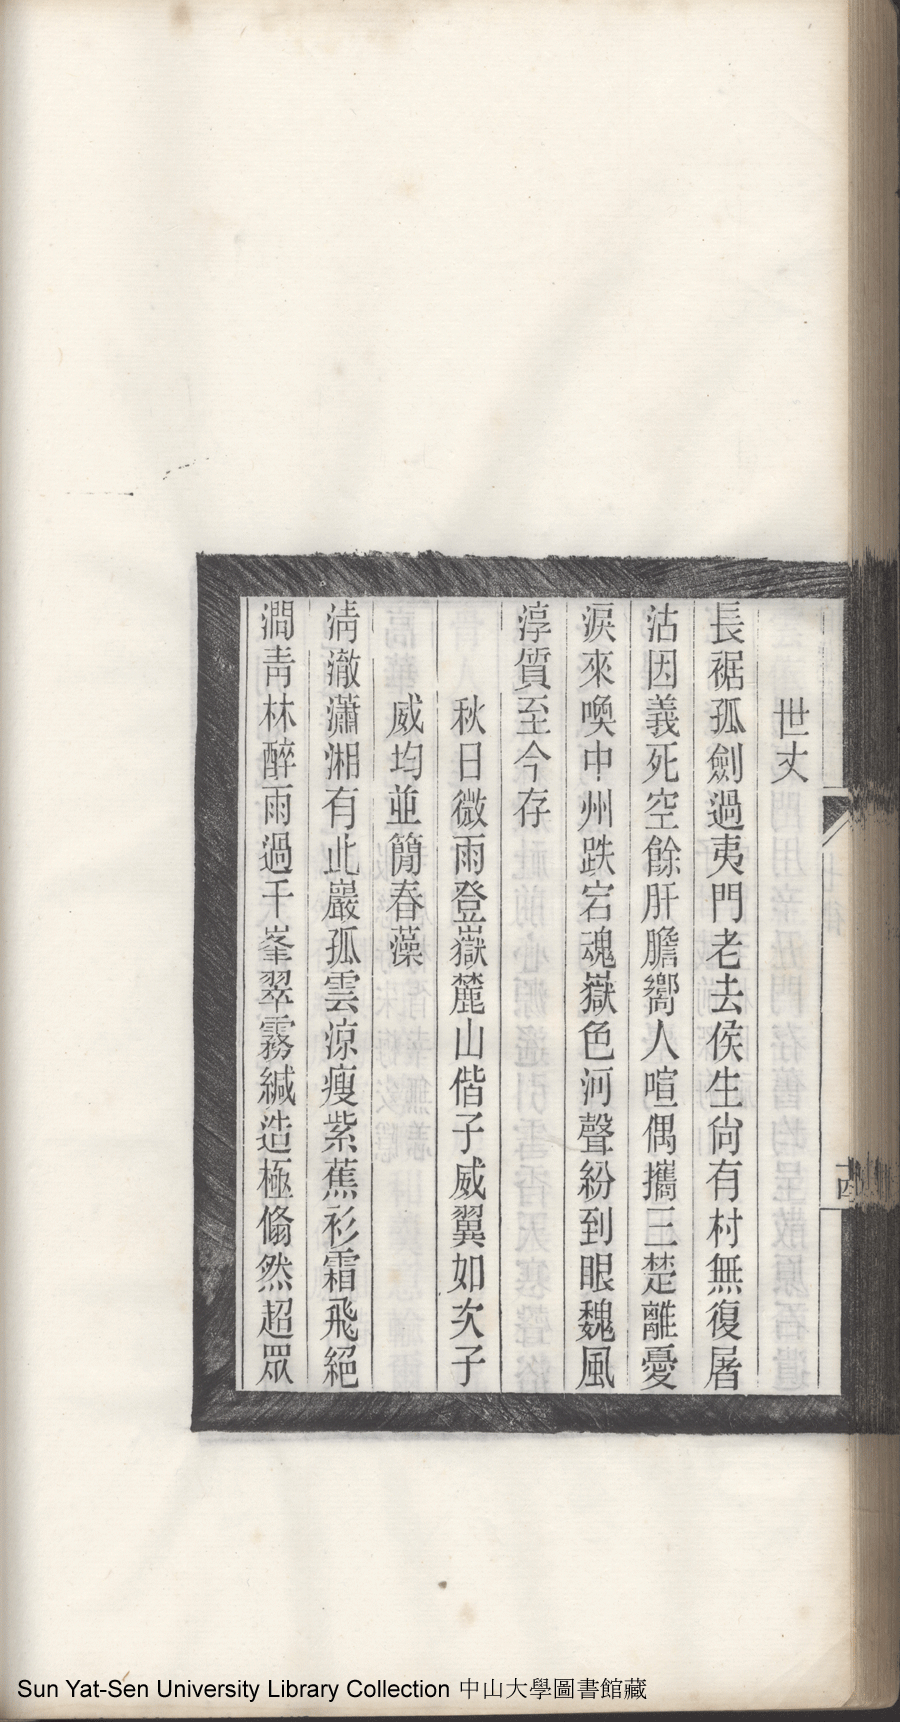 世丈
長裾孤劍過夷門老去侯生尙有村無復屠
沽因義死空餘肝膽嚮人喧偶攜三楚離憂
淚來喚中州跌宕魂嶽色河聲紛到眼魏風
淳質至今存
秋日微雨登嶽麓山偕子威翼如次子
威均並簡春藻
淸澈瀟湘有此巖孤雲涼瘦紫蕉衫霜飛絕
澗靑林醉雨過千峯翠霧緘造極翛然超眾
四
Sun Yat-Sen University Library Collection 中山大學圖書館藏